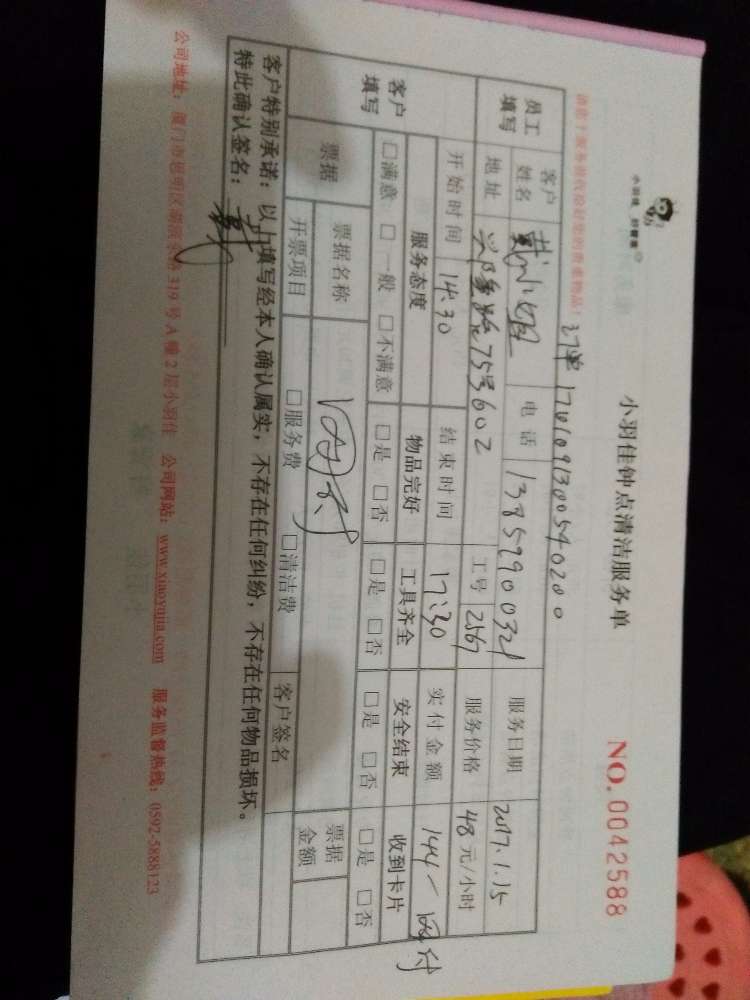 小羽佳 好管家
小羽佳钟点清洁服务单
NO. 0042588
请您于服务前收拾好您的贵重物品!
订单 1701091300540200
员工填写 客户姓名 电话 13859900321 服务日期 2017.1.15
地址 75号602 工号 2567 服务价格 48元/小时
开始时间 14:30 结束时间 17:30 实付金额 144
客户填写 服务态度 物品完好 工具齐全 安全结束 收到卡片
□满意 □一般 □不满意 □是 □否 □是 □否 □是 □否 □是 □否
票据 票据名称 票据金额
开票项目 □服务费 □清洁费 客户签名
客户特别承诺:以上填写经本人确认属实,不存在任何纠纷,不存在任何物品损坏。
特此确认签名:
公司地址:厦门市思明区湖滨东路319号A幢2层小羽佳 公司网站:www.xiaoyujia.com 服务监督热线:0592-5888123